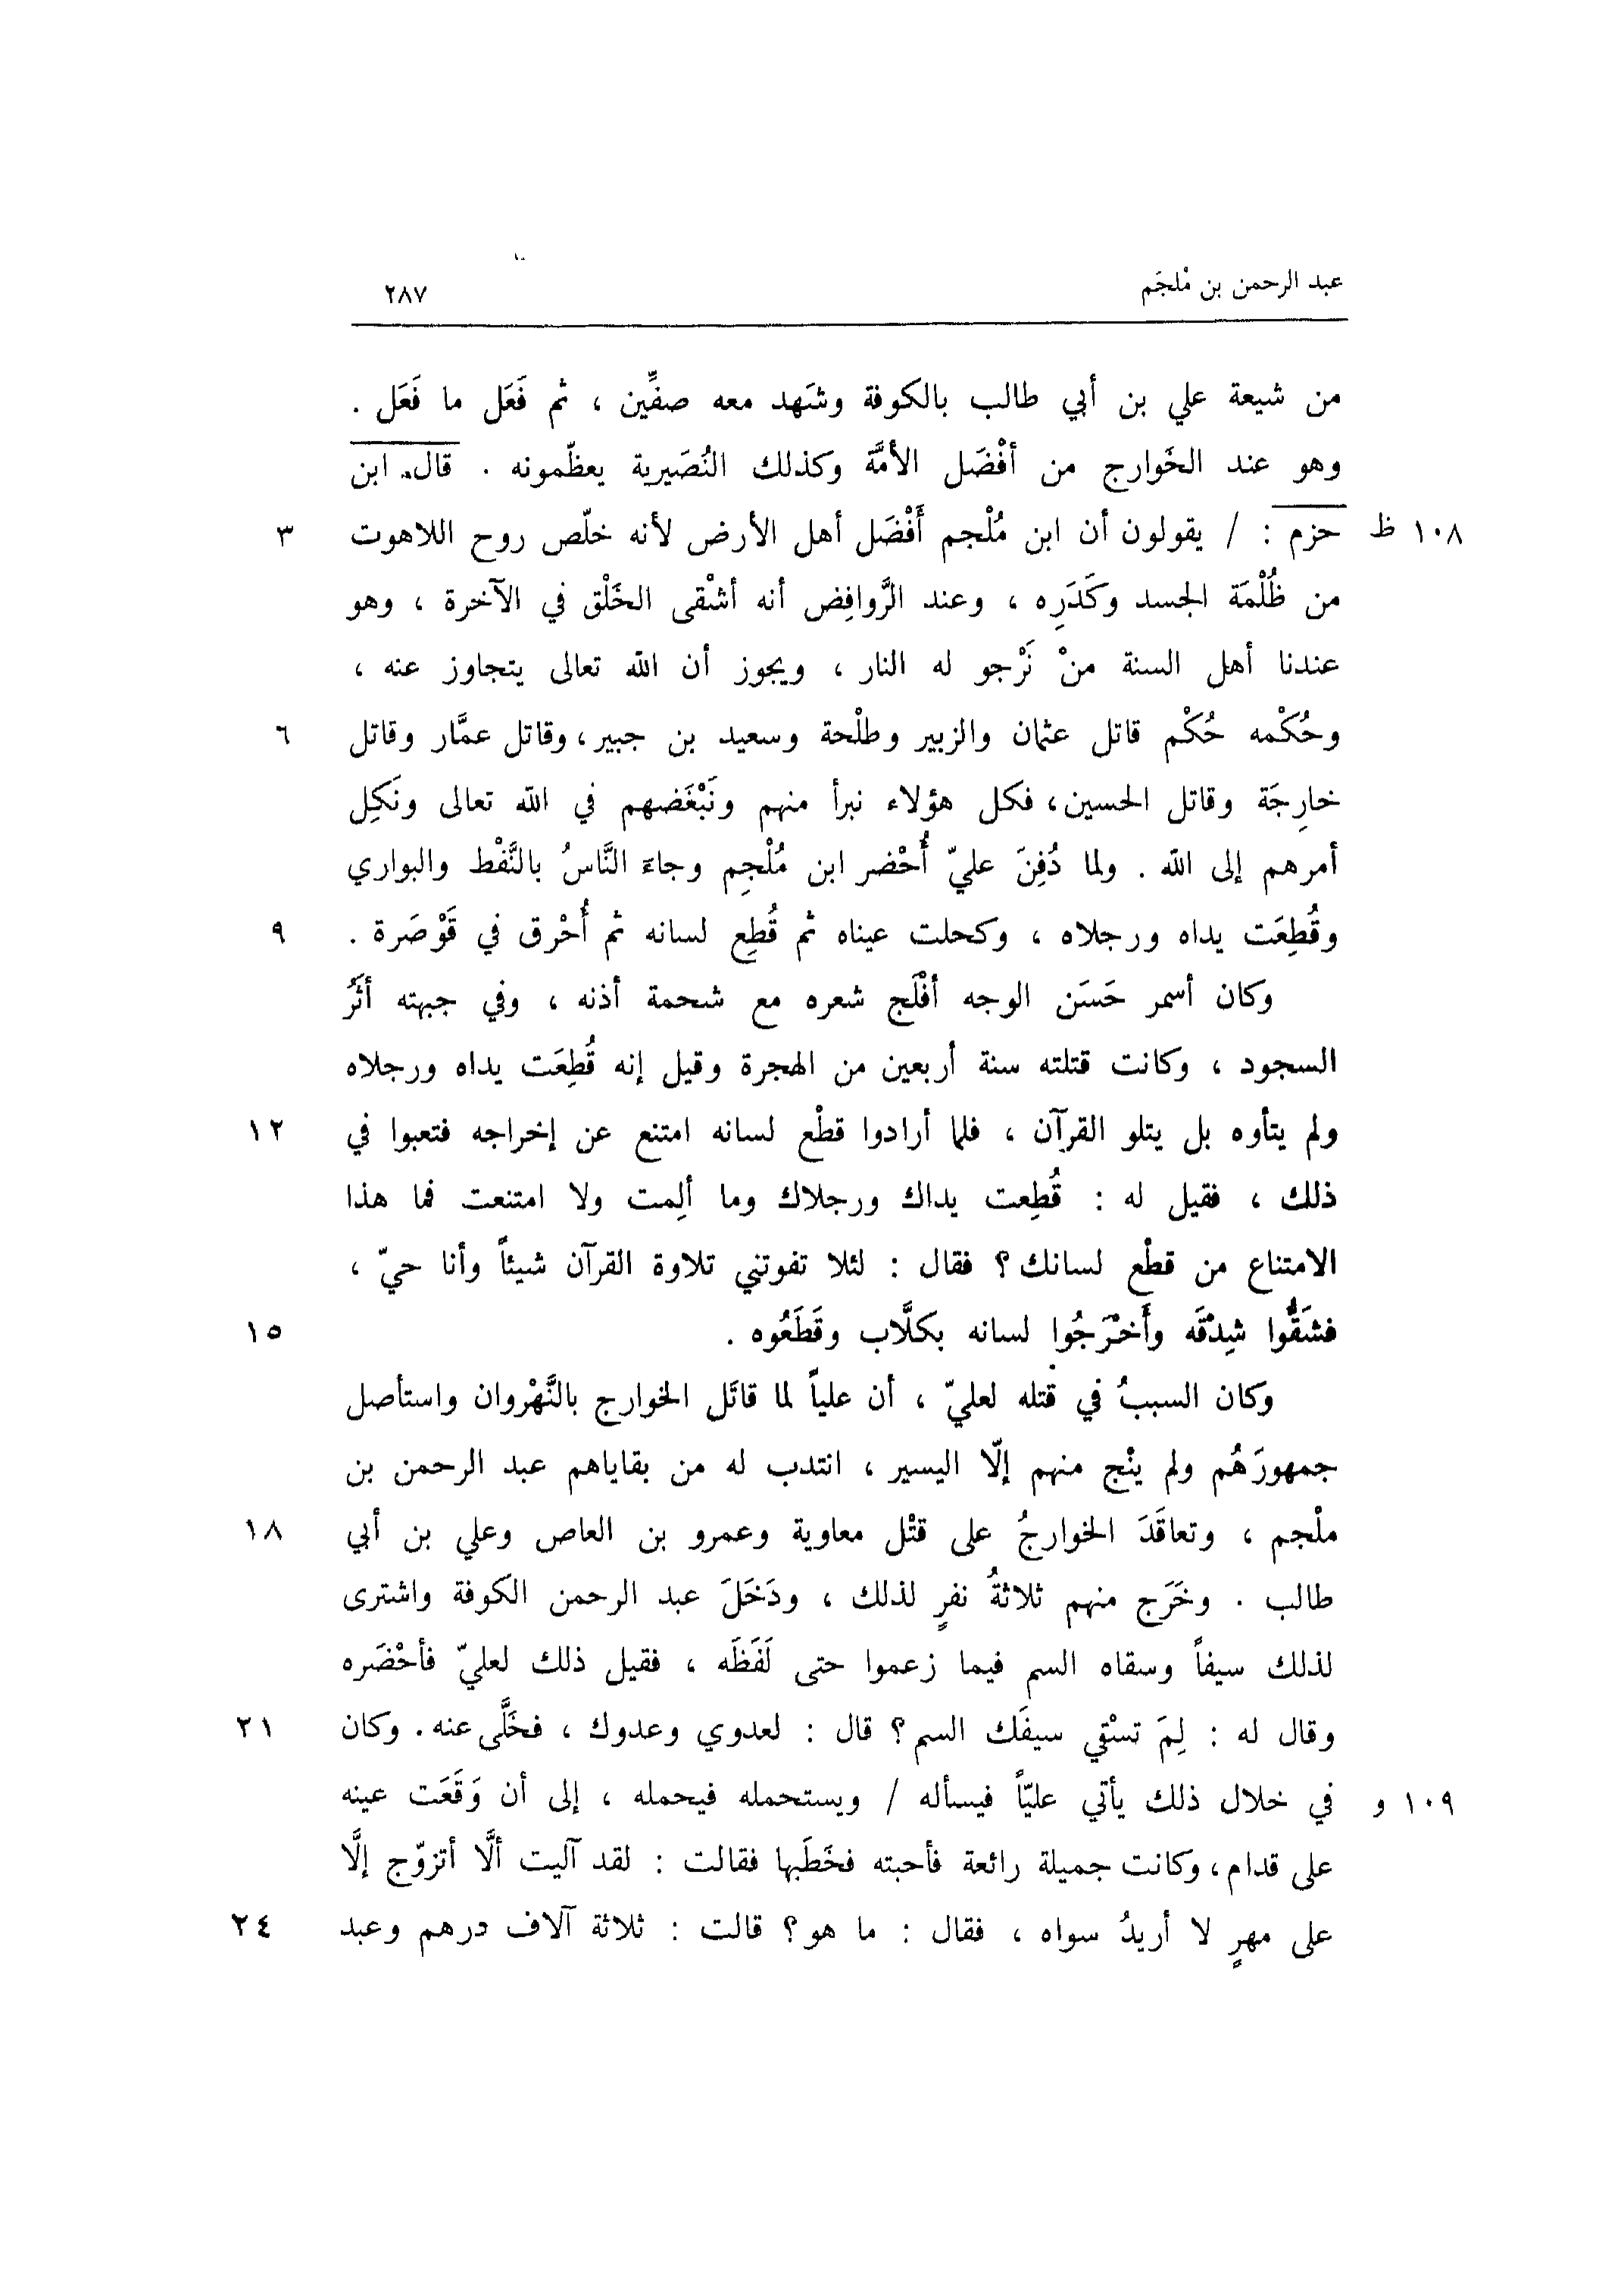 عبد الرحمن بن مْلجَم ٢٨٧
من شيعة علي بن أبي طالب بالكوفة وشَهد معه صفِّين ، ثم فَعَل ما فَعَل .
وهو عند الخَوارج من أفْضَل الأمَّة وكذلك النُصَيرية يعظّمونه . قال ابن
١٠٨ ظ حزم : / يقولون أن ابن مُلْجم أَفْضَل أهل الأرض لأنه خلّص روح اللاهوت ٣
من ظُلْمَة الجسد وكَدَرِه ، وعند الرَّوافِض أنه أشْقى الخَلْق في الآخرة ، وهو
عندنا أهل السنة منْ نَرْجو له النار ، ويجوز أن الله تعالى يتجاوز عنه ،
وحُكْمه حُكْم قاتل عثمان والزبير وطلْحة وسعيد بن جبير، وقاتل عمَّار وقاتل ٦
خارِجَة وقاتل الحسين، فكل هؤلاء نبرأ منهم ونَبْغَضهم في الله تعالى ونَكِل
أمرهم إلى الله . ولما دُفِنَ عليّ أُحْضر ابن مُلْجِم وجاءَ النَّاسُ بالنَّفْط والبواري
وقُطِعَت يداه ورجلاه ، وكحلت عيناه ثم قُطِع لسانه ثم أُحْرق في قَوْصَرة . ٩
وكان أسمر حَسَن الوجه أفْلَج شعره مع شحمة أذنه ، وفي جبهته أثَرُ
السجود ، وكانت قتلته سنة أربعين من الهجرة وقيل إنه قُطِعَت يداه ورجلاه
ولم يتأوه بل يتلو القرآن ، فلما أرادوا قطْع لسانه امتنع عن إخراجه فتعبوا في ١٢
ذلك ، فقيل له : قُطِعت يداك ورجلاك وما ألِمت ولا امتنعت فما هذا
الامتناع من قطْع لسانك ؟ فقال : لئلا تفوتني تلاوة القرآن شيئاً وأنا حيّ ،
فشَقُّوا شِدْقَه وأَخْرَجُوا لسانه بكلَّاب وقَطَعُوه . ١٥
وكان السببُ في قتله لعليّ ، أن علياً لما قاتَل الخوارج بالنَّهْروان واستأصل
جمهورَهُم ولم ينْج منهم إلّا اليسير ، انتدب له من بقاياهم عبد الرحمن بن
ملْجم ، وتعاقَدَ الخوارجُ على قتْل معاوية وعمرو بن العاص وعلي بن أبي ١٨
طالب . وخَرَج منهم ثلاثةُ نفرٍ لذلك ، ودَخَلَ عبد الرحمن الكوفة واشترى
لذلك سيفاً وسقاه السم فيما زعموا حتى لَفَظَه ، فقيل ذلك لعليّ فأحْضَره
وقال له : لِمَ تسْقي سيفَك السم ؟ قال : لعدوي وعدوك ، فخَلَّى عنه . وكان ٢١
١٠٩ و في خلال ذلك يأتي عليّاً فيسأله / ويستحمله فيحمله ، إلى أن وَقَعَت عينه
على قدام، وكانت جميلة رائعة فأحبته فخَطَبها فقالت : لقد آليت ألَّا أتزوّج إلَّا
على مهرٍ لا أريدُ سواه ، فقال : ما هو ؟ قالت : ثلاثة آلاف درهم وعبد ٢٤